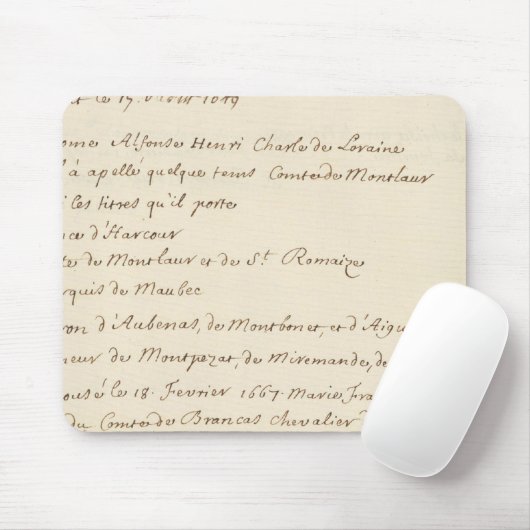 et le 17. Aoust 1649
ome Alfonse Henri Charle de Loraine
l'à apellé quelque tems Comte de Montlaur
i les titres qu'il porte
nce d'Harcour
te de Montlaur et de St. Romaize
rquis de Maubec
ron d'Aubenas, de Montbonet, et d'Aigu
neur de Montpezat, de Miremande, de
ousé le 18. Fevrier 1667. Marie Fra
du Comte de Brancas Chevalier